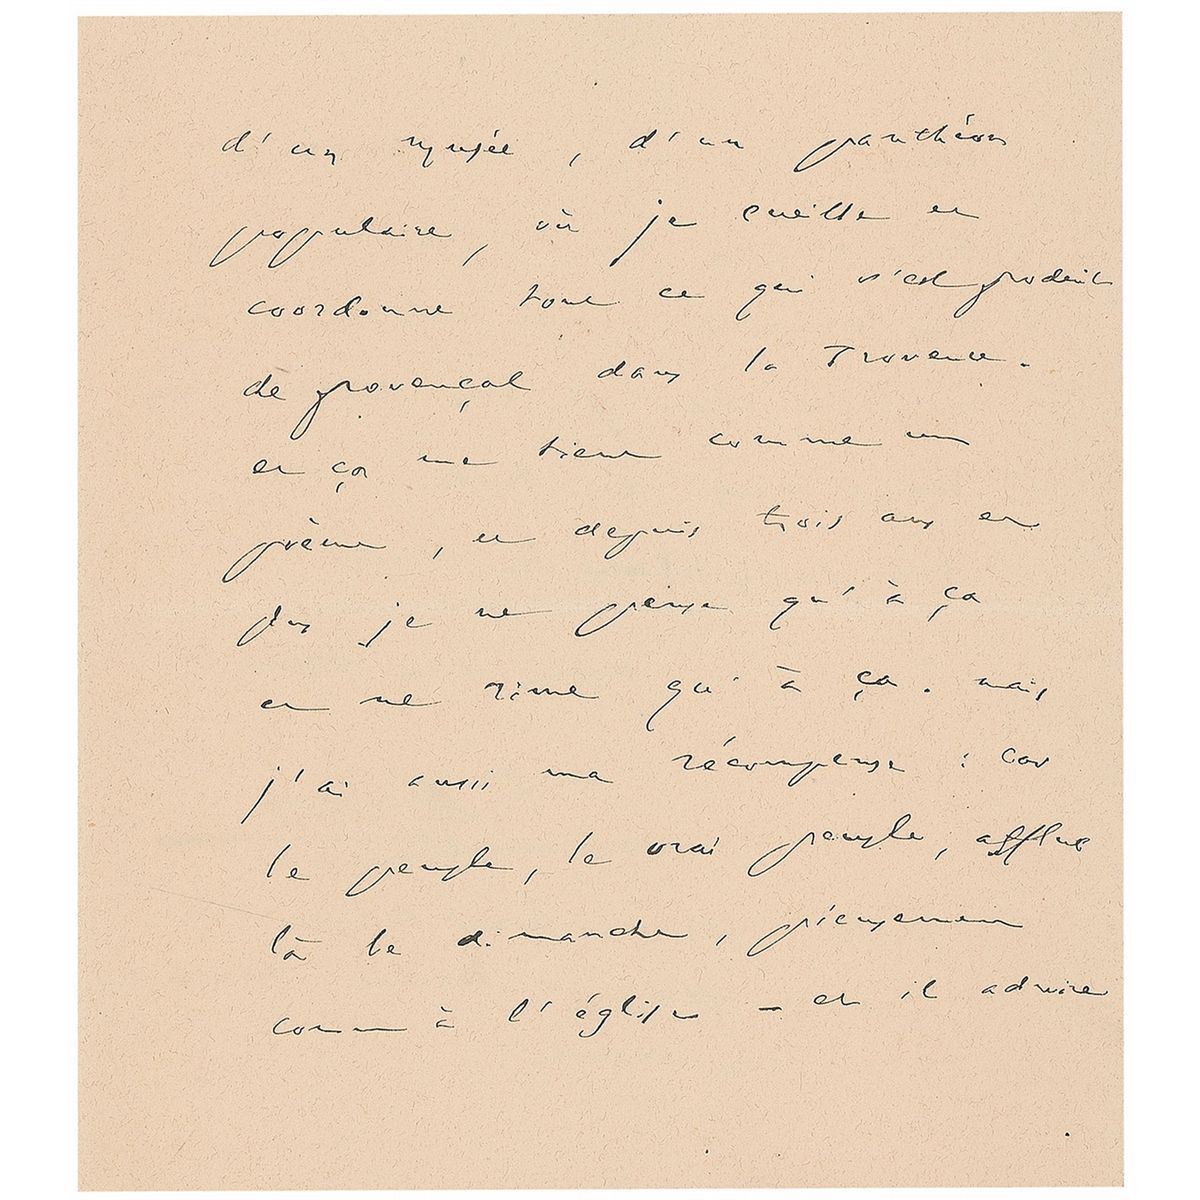 d'un musée, d'un panthéon
populaire, où je cueille et
coordonne tout ce qui s'est produit
de provençal dans la Provence.
et ça me tient comme un
poème, et depuis trois ans et
plus je ne pense qu'à ça
et ne rime qu'à ça. mais
j'ai aussi ma récompense : car
le peuple, le vrai peuple, afflue
là le dimanche, pieusement
comme à l'église – et il admire